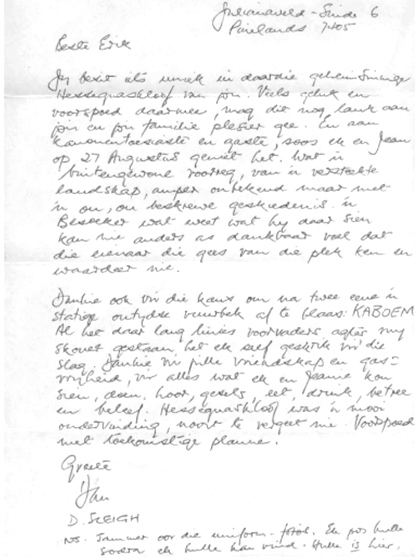 Julianaveld - Einde 6
Pinelands 7405
Beste Erik
Jy besit iets uniek in daardie geheimsinnige
Hessequaskloof van jou. Veels geluk en
voorspoed daarmee, mag dit nog lank aan
jou en jou familie plesier gee. En aan
kanonentoesiaste en gaste, soos ek en Jean
op 27 Augustus geniet het. Wat 'n
buitengewone voorreg, van 'n verstokte
landskap, amper onbekend maar met
'n ou, ou beskrewe geskiedenis. 'n
Besoeker wat weet wat hy daar sien
kan nie anders as dankbaar voel dat
die eienaar die gees van die plek ken en
waardeer nie.
Dankie ook vir die kans om na twee eeue 'n
statige outydse vuurbek af te blaas: KABOEM
Al het daar lang linies voorvaders agter my
skouer gestaan, het ek self geskrik vir die
slag. Dankie vir julle vriendskap en gas=
vryheid, vir alles wat ek en Jeanne kon
sien, doen, hoor, gesels, eet, drink, betree
en beleef. Hessequaskloof was 'n mooi
ondervinding, nooit te vergeet nie. Voorspoed
met toekomstige planne.
Groete
Dan
D. SLEIGH
NS. Jammer oor die uniform-foto's. Ek pos hulle
sodra ek hulle kan vind. Hulle is hier.